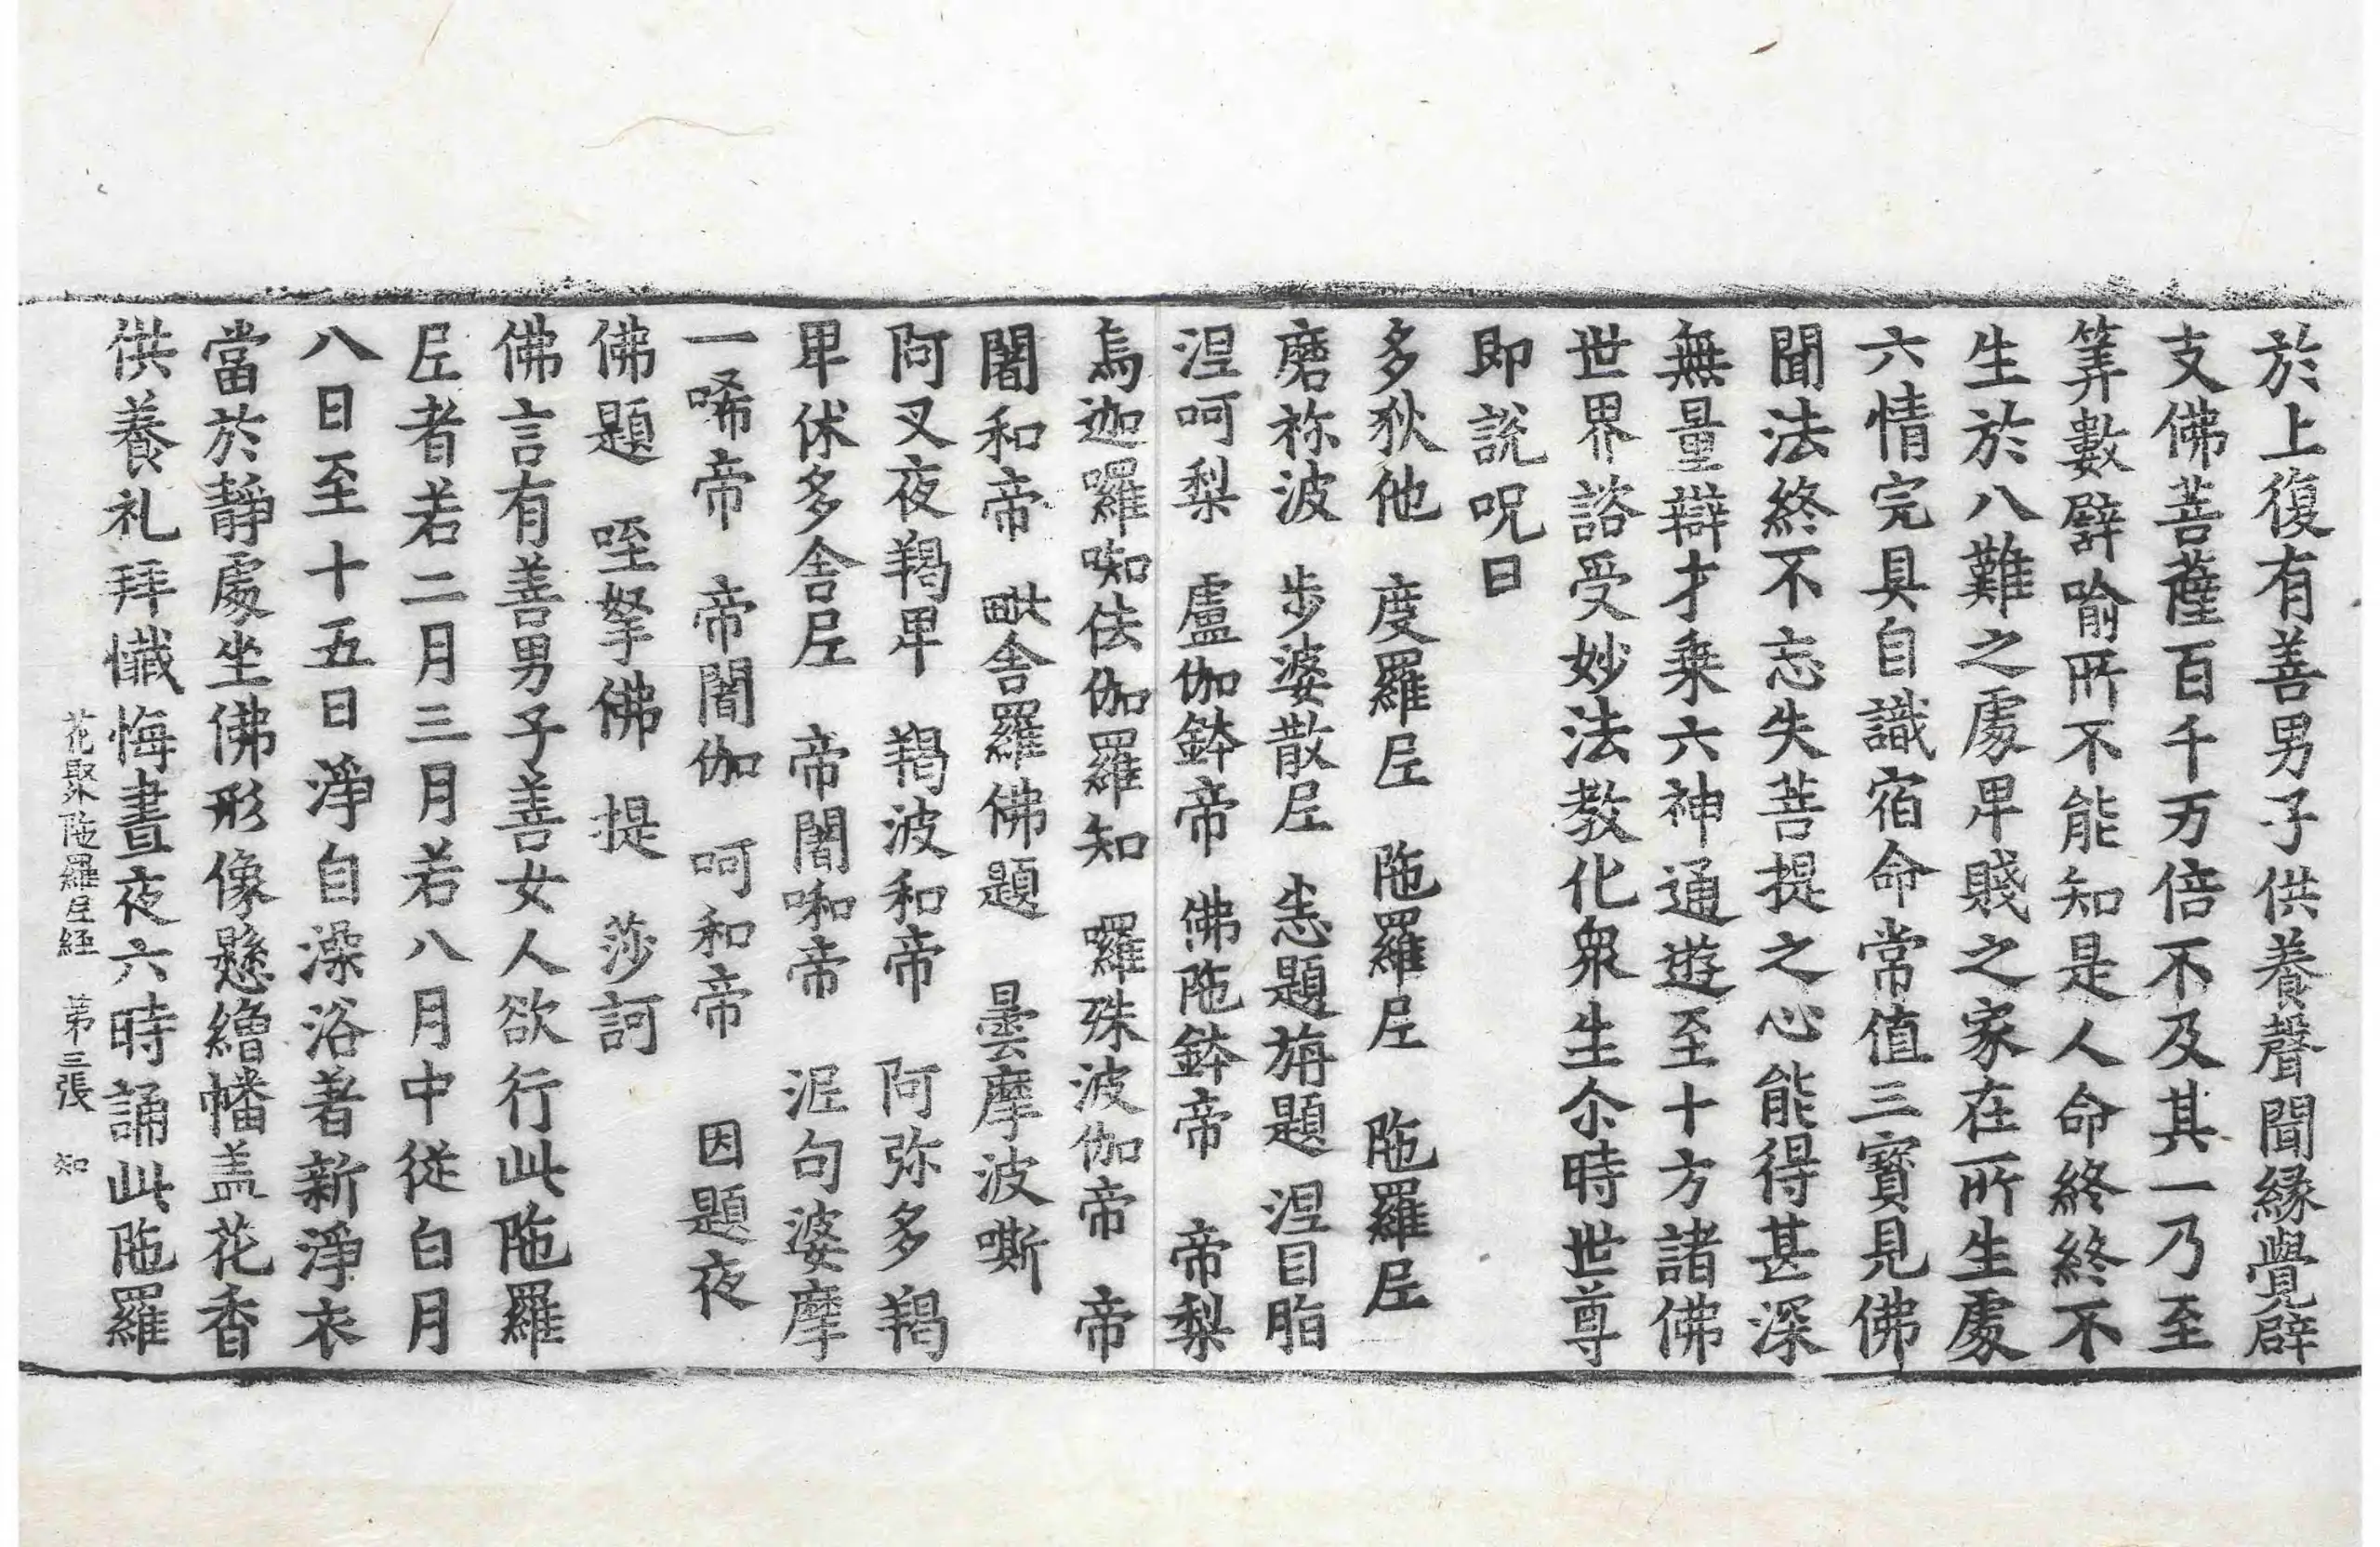 於上復有善男子供養聲聞縁覺辟
支佛菩薩百千万倍不及其一乃至
筭數譬喻所不能知是人命終終不
生於八難之處卑賤之家在所生處
六情完具自識宿命常值三寶見佛
聞法終不忘失菩提之心能得甚深
無量辯才乘六神通遊至十方諸佛
世界諮受妙法教化衆生尒時世尊
即說呪曰
多狄他　度羅𡰱　陁羅𡰱　陁羅𡰱
磨祢波　步婆散𡰱　題旃題　涅目脂
涅呵梨　盧伽鉢帝　佛陁鉢帝　帝梨
烏迦囉㗌佉伽羅知　囉殊波伽帝　帝
闍和帝　毗舍羅佛題　曇摩波嘶
阿叉夜羯卑　羯波和帝　阿弥多羯
卑㳜多舍𡰱　帝闍啝帝　泥句婆摩
一唏帝　帝闍伽　呵和帝　因題夜
佛題　咥拏佛　提　莎訶
佛言有善男子善女人欲行此陁羅
𡰱者若二月三月若八月中從白月
八日至十五日淨自澡浴著新淨衣
當於靜處坐佛形像懸繒幡盖花香
供養礼拜懺悔晝夜六時誦此陁羅
花聚陁羅𡰱經　第三張　知